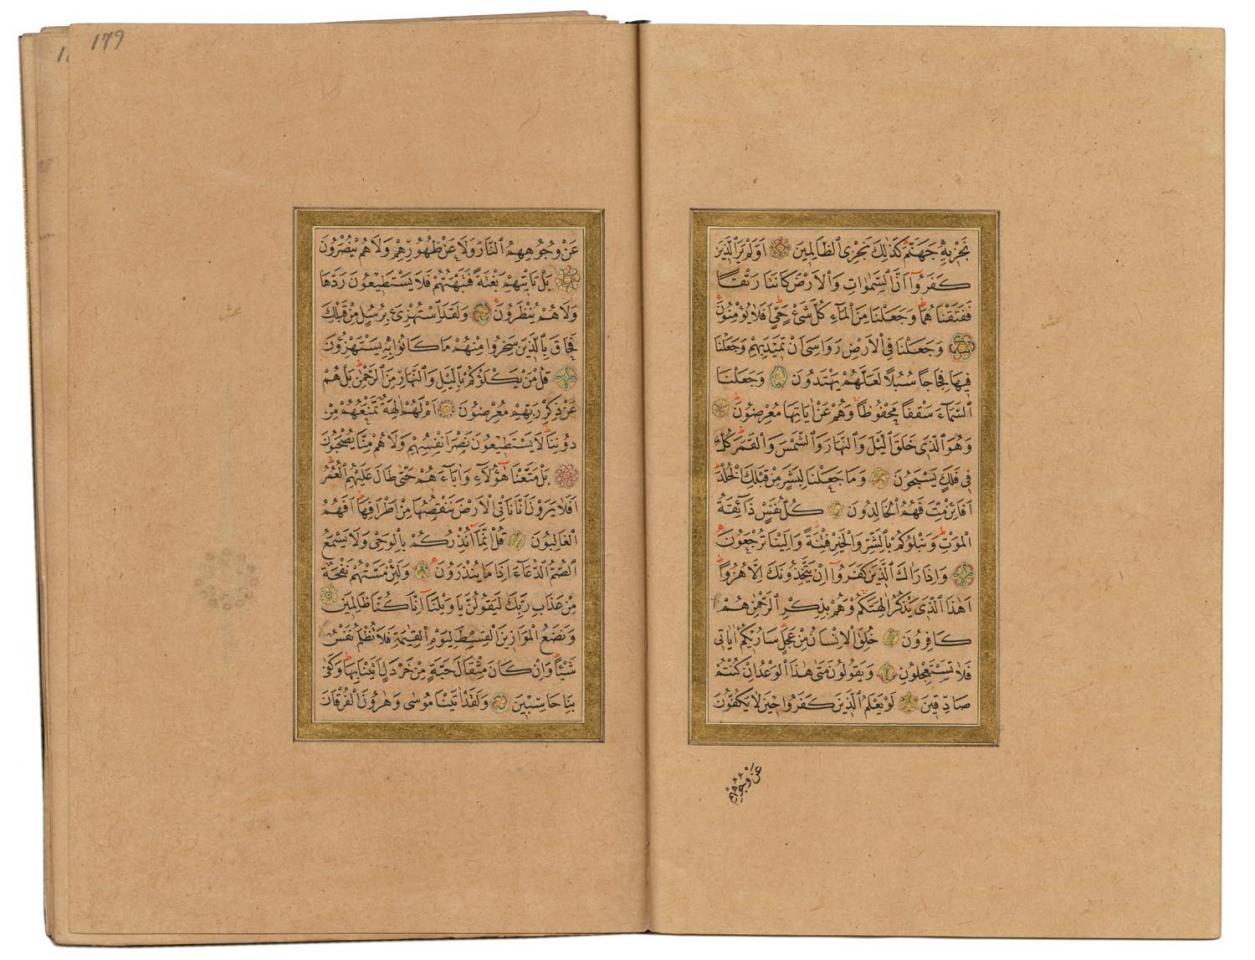 نَجْزِيهِ جَهَنَّمَ كَذٰلِكَ نَجْزِي الظَّالِمِينَ اَوَلَمْ يَرَ الَّذِينَ
كَفَرُوا اَنَّ السَّمٰوَاتِ وَالْاَرْضَ كَانَتَا رَتْقًا
فَفَتَقْنَاهُمَا وَجَعَلْنَا مِنَ الْمَاءِ كُلَّ شَيْءٍ حَيٍّ اَفَلَا يُؤْمِنُونَ
وَجَعَلْنَا فِي الْاَرْضِ رَوَاسِيَ اَنْ تَمِيدَ بِهِمْ وَجَعَلْنَا
فِيهَا فِجَاجًا سُبُلًا لَعَلَّهُمْ يَهْتَدُونَ وَجَعَلْنَا
السَّمَاءَ سَقْفًا مَحْفُوظًا وَهُمْ عَنْ اٰيَاتِهَا مُعْرِضُونَ
وَهُوَ الَّذِي خَلَقَ الَّيْلَ وَالنَّهَارَ وَالشَّمْسَ وَالْقَمَرَ كُلٌّ
فِي فَلَكٍ يَسْبَحُونَ وَمَا جَعَلْنَا لِبَشَرٍ مِنْ قَبْلِكَ الْخُلْدَ
اَفَائِنْ مِتَّ فَهُمُ الْخَالِدُونَ كُلُّ نَفْسٍ ذَائِقَةُ
الْمَوْتِ وَنَبْلُوكُمْ بِالشَّرِّ وَالْخَيْرِ فِتْنَةً وَاِلَيْنَا تُرْجَعُونَ
وَاِذَا رَاٰكَ الَّذِينَ كَفَرُوا اِنْ يَتَّخِذُونَكَ اِلَّا هُزُوًا
اَهٰذَا الَّذِي يَذْكُرُ اٰلِهَتَكُمْ وَهُمْ بِذِكْرِ الرَّحْمٰنِ هُمْ
كَافِرُونَ خُلِقَ الْاِنْسَانُ مِنْ عَجَلٍ سَاُرِيكُمْ اٰيَاتِي
فَلَا تَسْتَعْجِلُونِ وَيَقُولُونَ مَتٰى هٰذَا الْوَعْدُ اِنْ كُنْتُمْ
صَادِقِينَ لَوْ يَعْلَمُ الَّذِينَ كَفَرُوا حِينَ لَا يَكُفُّونَ
عَنْ وُجُوهِهِمُ
179
عَنْ وُجُوهِهِمُ النَّارَ وَلَا عَنْ ظُهُورِهِمْ وَلَا هُمْ يُنْصَرُونَ
بَلْ تَاْتِيهِمْ بَغْتَةً فَتَبْهَتُهُمْ فَلَا يَسْتَطِيعُونَ رَدَّهَا
وَلَا هُمْ يُنْظَرُونَ وَلَقَدِ اسْتُهْزِئَ بِرُسُلٍ مِنْ قَبْلِكَ
فَحَاقَ بِالَّذِينَ سَخِرُوا مِنْهُمْ مَا كَانُوا بِهِ يَسْتَهْزِؤُنَ
قُلْ مَنْ يَكْلَؤُكُمْ بِالَّيْلِ وَالنَّهَارِ مِنَ الرَّحْمٰنِ بَلْ هُمْ
عَنْ ذِكْرِ رَبِّهِمْ مُعْرِضُونَ اَمْ لَهُمْ اٰلِهَةٌ تَمْنَعُهُمْ مِنْ
دُونِنَا لَا يَسْتَطِيعُونَ نَصْرَ اَنْفُسِهِمْ وَلَا هُمْ مِنَّا يُصْحَبُونَ
بَلْ مَتَّعْنَا هٰؤُلَاءِ وَاٰبَاءَهُمْ حَتّٰى طَالَ عَلَيْهِمُ الْعُمُرُ
اَفَلَا يَرَوْنَ اَنَّا نَاْتِي الْاَرْضَ نَنْقُصُهَا مِنْ اَطْرَافِهَا اَفَهُمُ
الْغَالِبُونَ قُلْ اِنَّمَا اُنْذِرُكُمْ بِالْوَحْيِ وَلَا يَسْمَعُ
الصُّمُّ الدُّعَاءَ اِذَا مَا يُنْذَرُونَ وَلَئِنْ مَسَّتْهُمْ نَفْحَةٌ
مِنْ عَذَابِ رَبِّكَ لَيَقُولُنَّ يَا وَيْلَنَا اِنَّا كُنَّا ظَالِمِينَ
وَنَضَعُ الْمَوَازِينَ الْقِسْطَ لِيَوْمِ الْقِيٰمَةِ فَلَا تُظْلَمُ نَفْسٌ
شَيْئًا وَاِنْ كَانَ مِثْقَالَ حَبَّةٍ مِنْ خَرْدَلٍ اَتَيْنَا بِهَا وَكَفٰى
بِنَا حَاسِبِينَ وَلَقَدْ اٰتَيْنَا مُوسٰى وَهٰرُونَ الْفُرْقَانَ